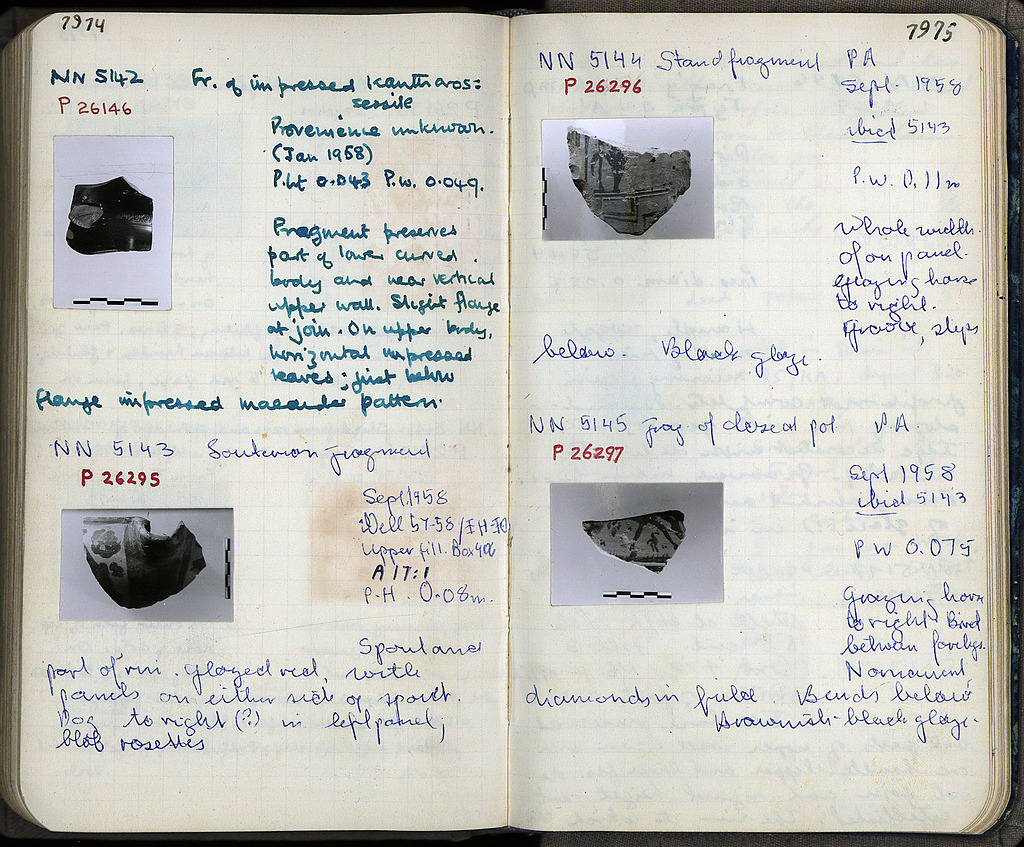 7974
NN 5142 Fr. of impressed Kantharos:
sessile
P 26146
Provenience unknown.
(Jan 1958)
P.Ht 0.043 P.W. 0.049.
Fragment preserves
part of lower curved
body and near vertical
upper wall. Slight flange
at join. On upper body,
horizontal impressed
leaves; just below
flange impressed maeander pattern.
NN 5143 fragment
P 26295
Sept 1958
Well 57-58/
Upper fill. Box 406
A 17:1
P.H. 0.08m.
Spout and
part of rim. Glazed red, with
panels on either side of spout.
Dog to right (?) in left panel;
blob rosettes
7975
NN 5144 Stand fragment PA
P 26296
Sept. 1958
ibid 5143
P.W. 0.11m
Whole width
of on panel.
grazing horse
to right.
Groove, steps
below. Black glaze.
NN 5145 Frag of closed pot P.A.
P 26297
Sept 1958
ibid 5143
P W 0.075
Grazing horse
to right. Bird
between forelegs.
diamonds in field. Bands below
Brownish-black glaze.